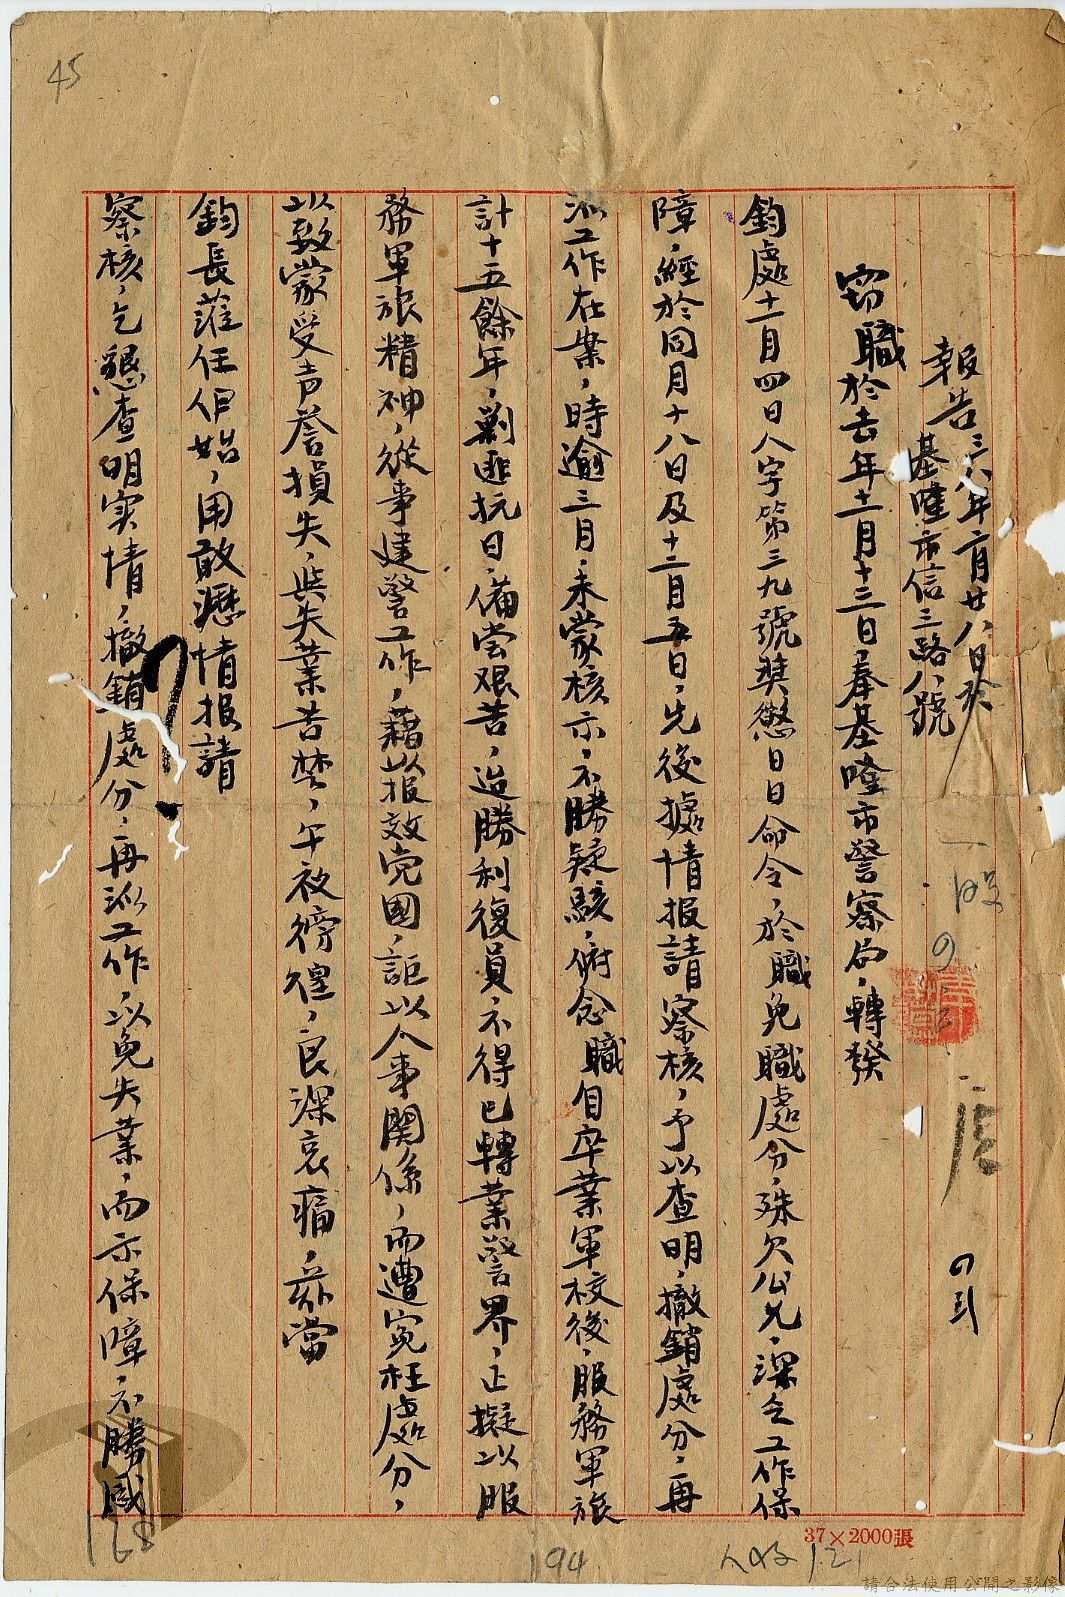 45
報告 三八年二月廿八日於
基隆市信三路八號
竊職於去年十一月十三日，奉基隆市警察局，轉發
鈞處十一月四日人字第三九號獎懲日日命令，於職免職處分，殊欠公允，深乏工作保
障，經於同月十八日及十二月五日，先後據情报請察核，予以查明，撤銷處分，再
派工作在案，時逾三月，未蒙核示，不勝疑駭，俯念職自卒業軍校後，服務軍旅
計十五餘年，剿匪抗日，備尝艰苦，迨勝利復員，不得已轉業警界，正擬以服
務軍旅精神，從事建警工作，藉以报效党國，詎以人事関係，而遭寃枉處分，
以致蒙受声誉損失，與失業苦楚，午夜徬徨，良深哀痛，兹當
鈞長蒞任伊始，用敢瀝情报請
察核，乞懇查明实情，撤銷處分，再派工作，以免失業，而示保障，不勝感
37×2000張
168
194
121
請合法使用公開之影像